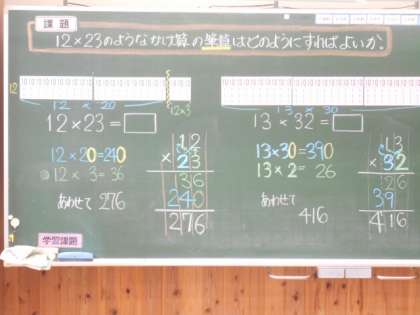 課題
12×23のようなかけ算の筆算はどのようにすればよいか。
12
12 × 20
12×3
13 × 30
12×23=
12×20=240
12×3=36
あわせて 276
12
×23
36
240
276
13×32=
13×30=390
13×2=26
416
あわせて
13
×32
26
39
416
学習課題